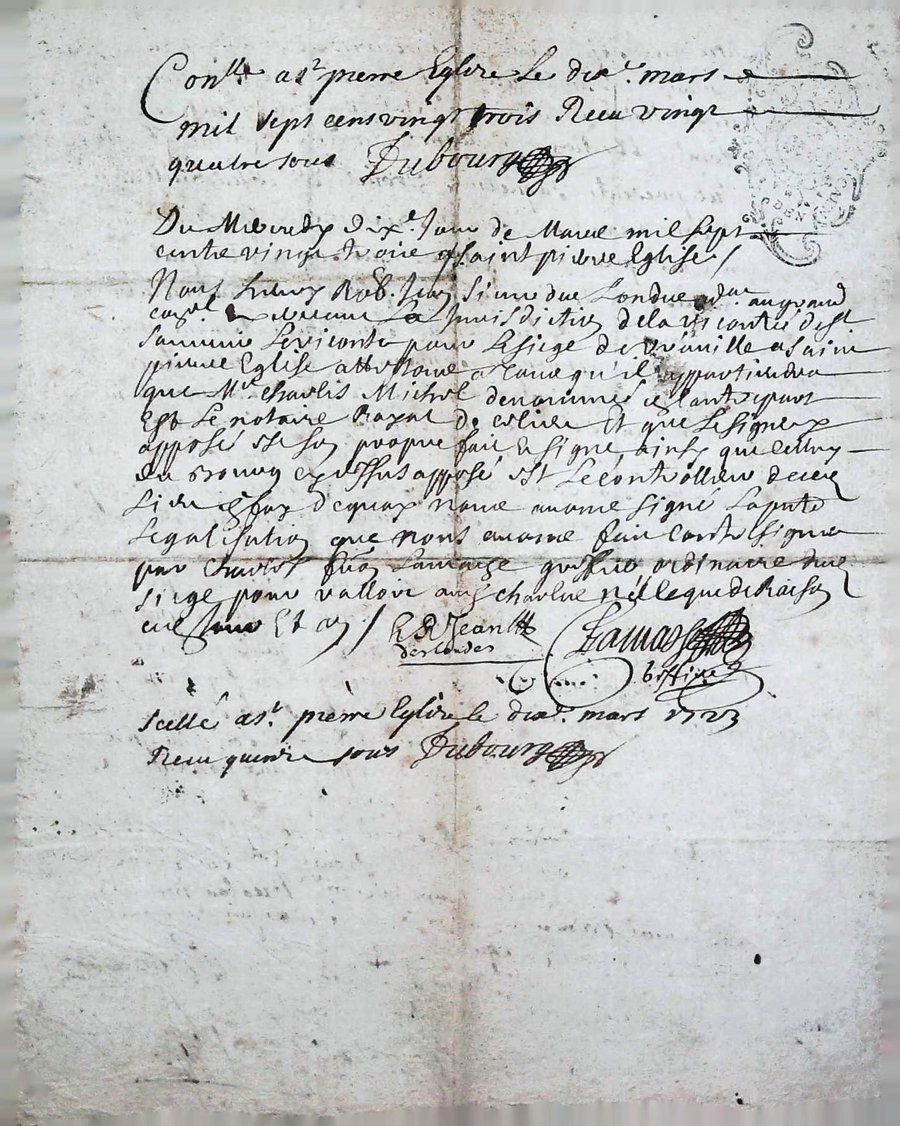 Con.lle a st. pierre Eglise Le dixe. mars
mil sept cens vingt trois Receu vingt
quatre sous Dubourg
Du Mercredy dixe. Jour de Mars mil sept
cents vingt trois a Saint pierre Eglise
Nous Rob. Jean Sieur des Londes au grand
La Jurisdiction de la viconté de st.
Sauveur Leviconte pour Le siege de a Saint
pierre Eglise attestons a tous qu'il appartiendra
que Mre. Charles Michel denommé cy
Est Le notaire Royal de ce lieu Et que Le signe
apposé est son propre fait Et signe ainsy que celuy
du Bourg cy dessus apposé est Le controlleur de ce
Lieu En foy de quoy nous avons signé La pnte
Legalisation que nous avons fait contresigner
par Lamache greffier ordinaire du
siege pour valloir aud. Charles ce que de Raison
ce jour Et an R R Jean
deslondes
Lamache
Scellé a st. pierre Eglise le dixe. mars 1723
Receu quinze sous Dubourg